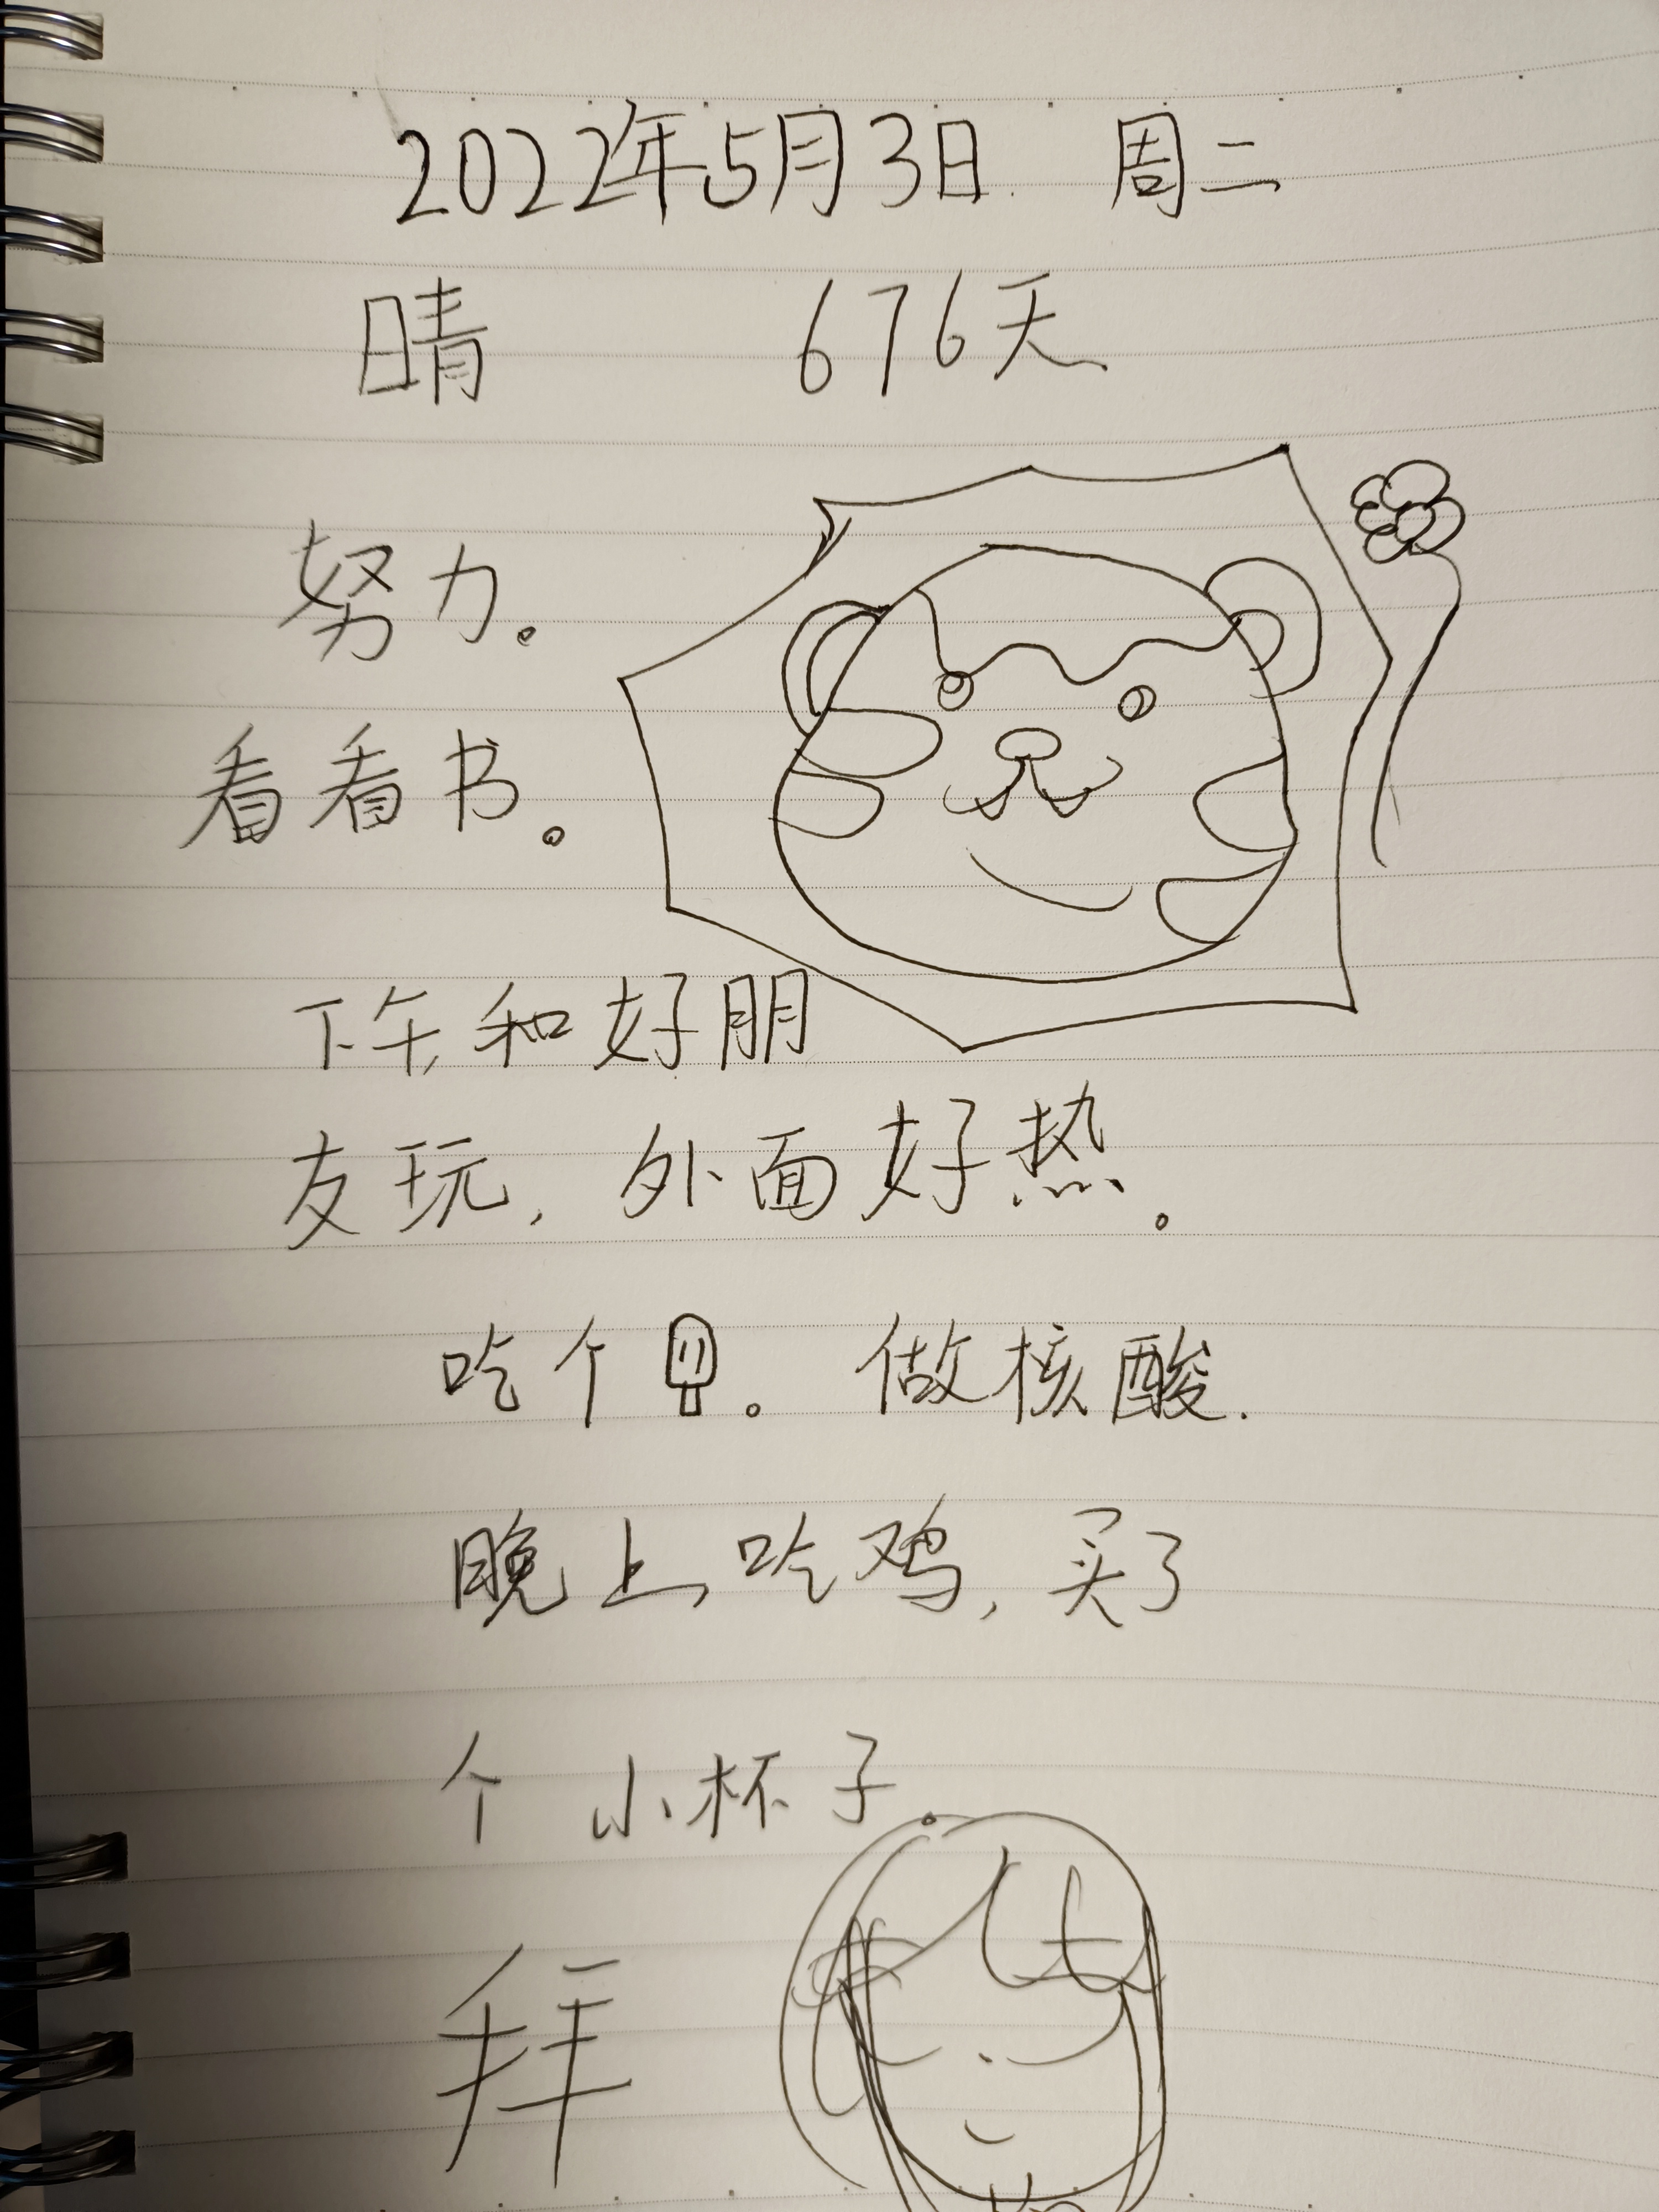 2022年5月3日. 周二
晴 676天
努力。
看看书。
下午和好朋
友玩, 外面好热。
吃个。 做核酸.
晚上吃鸡, 买了
个小杯子.
拜